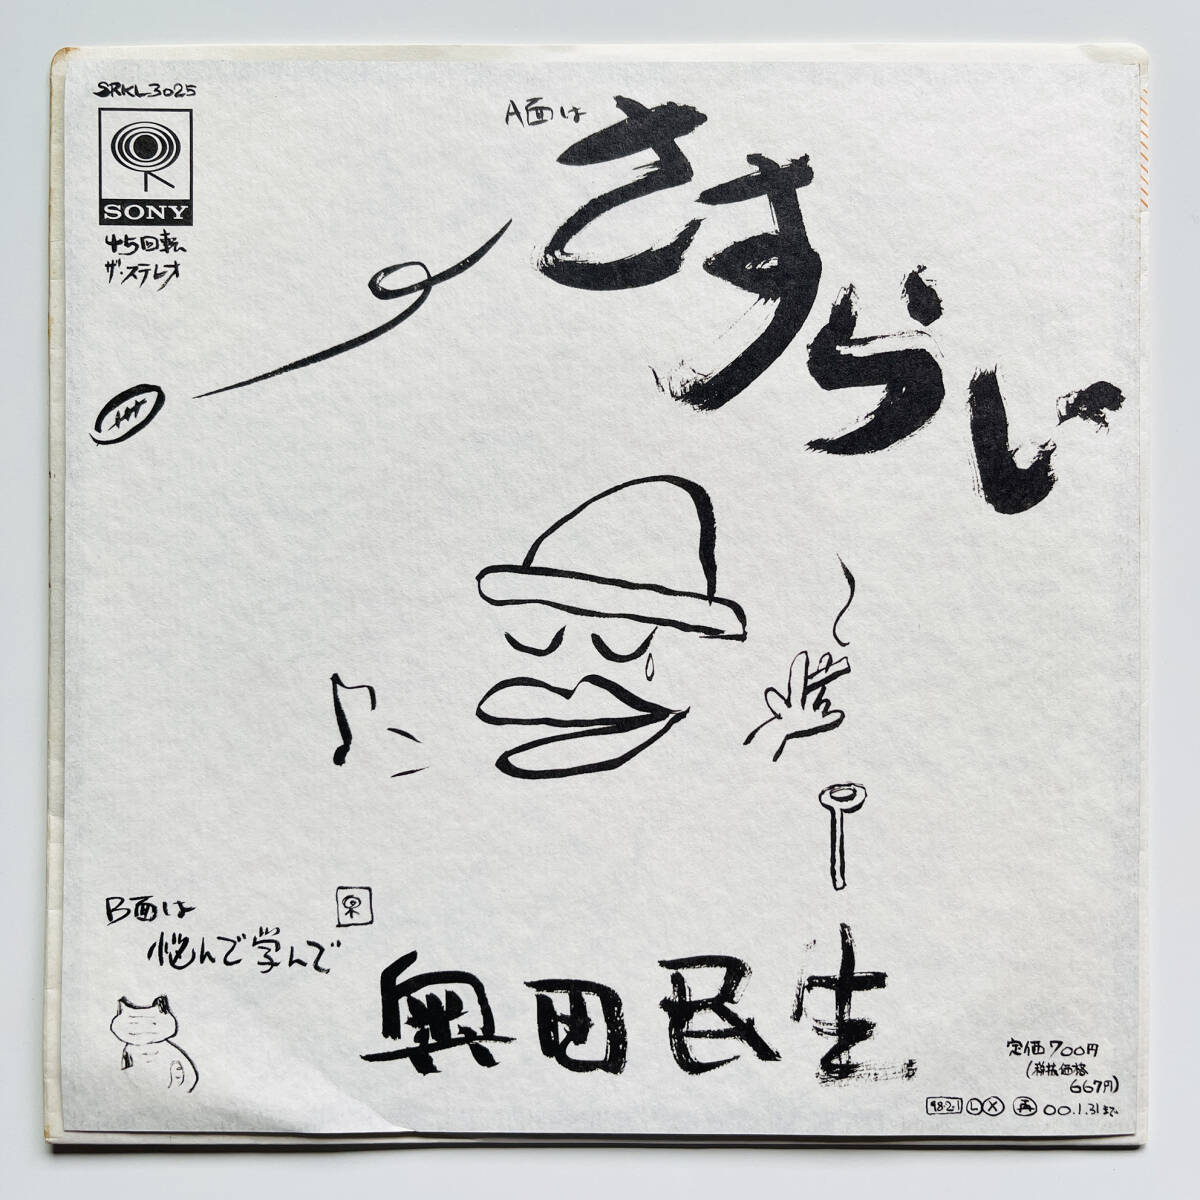 SRKL3025
SONY
45回転
ザ・ステレオ
A面は
さすらい
B面は
悩んで学んで
奥田民生
定価700円
(税抜価格
667円)
98・2・1 L X 再 00.1.31まで